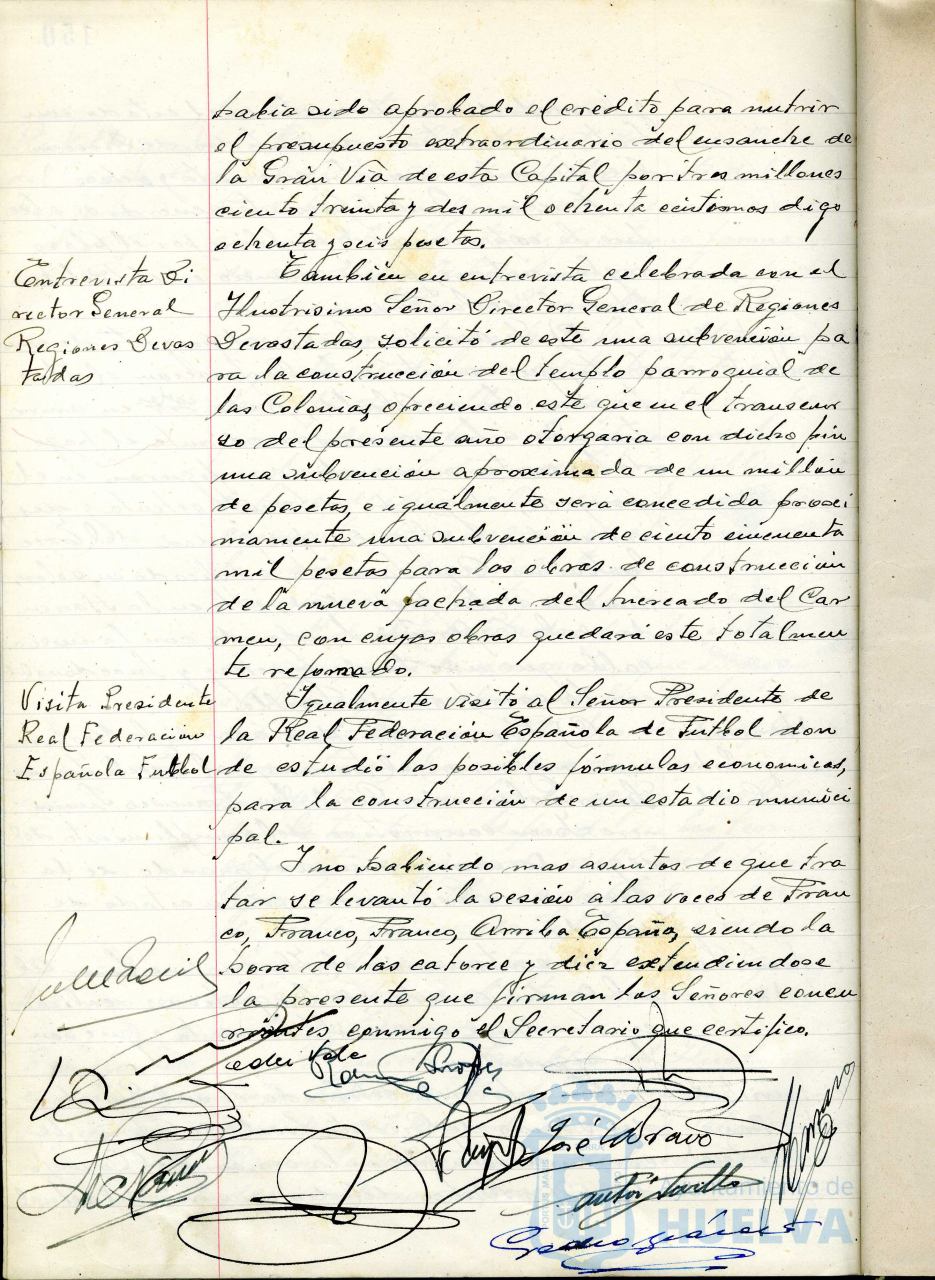 habia sido aprobado el credito para nutrir
el presupuesto extraordinario del ensanche de
la Gran Via de esta Capital por tres millones
ciento treinta y dos mil ochenta centismos digo
ochenta y seis pesetas.
Entrevista Di
rector General
Regiones Devas
tadas
Tambien en entrevista celebrada con el
Ilustrisimo Señor Director General de Regiones
Devastadas, solicitó de este una subvención pa
ra la construcción del templo parroquial de
las Colonias, ofreciendo este que en el transcur
so del presente año otorgaria con dicho fin
una subvención aproximada de un millón
de pesetas, e igualmente será concedida proxi
mamente una subvención de ciento cincuenta
mil pesetas para las obras de construcción
de la nueva fachada del Mercado del Car
men, con cuyas obras quedará este totalmen
te reformado.
Visita Presidente
Real Federación
Española Futbol
Igualmente visitó al Señor Presidente de
la Real Federación Española de Futbol don
de estudió las posibles fórmulas economicas,
para la construcción de un estadio munici
pal.
Y no habiendo mas asuntos de que tra
tar se levantó la sesión a las voces de Fran
co, Franco, Franco, Arriba España, siendo la
hora de las catorce y diez extendiendose
la presente que firman los Señores concu
rrentes conmigo el Secretario que certifico.
José Bravo
Ayuntamiento de
HUELVA